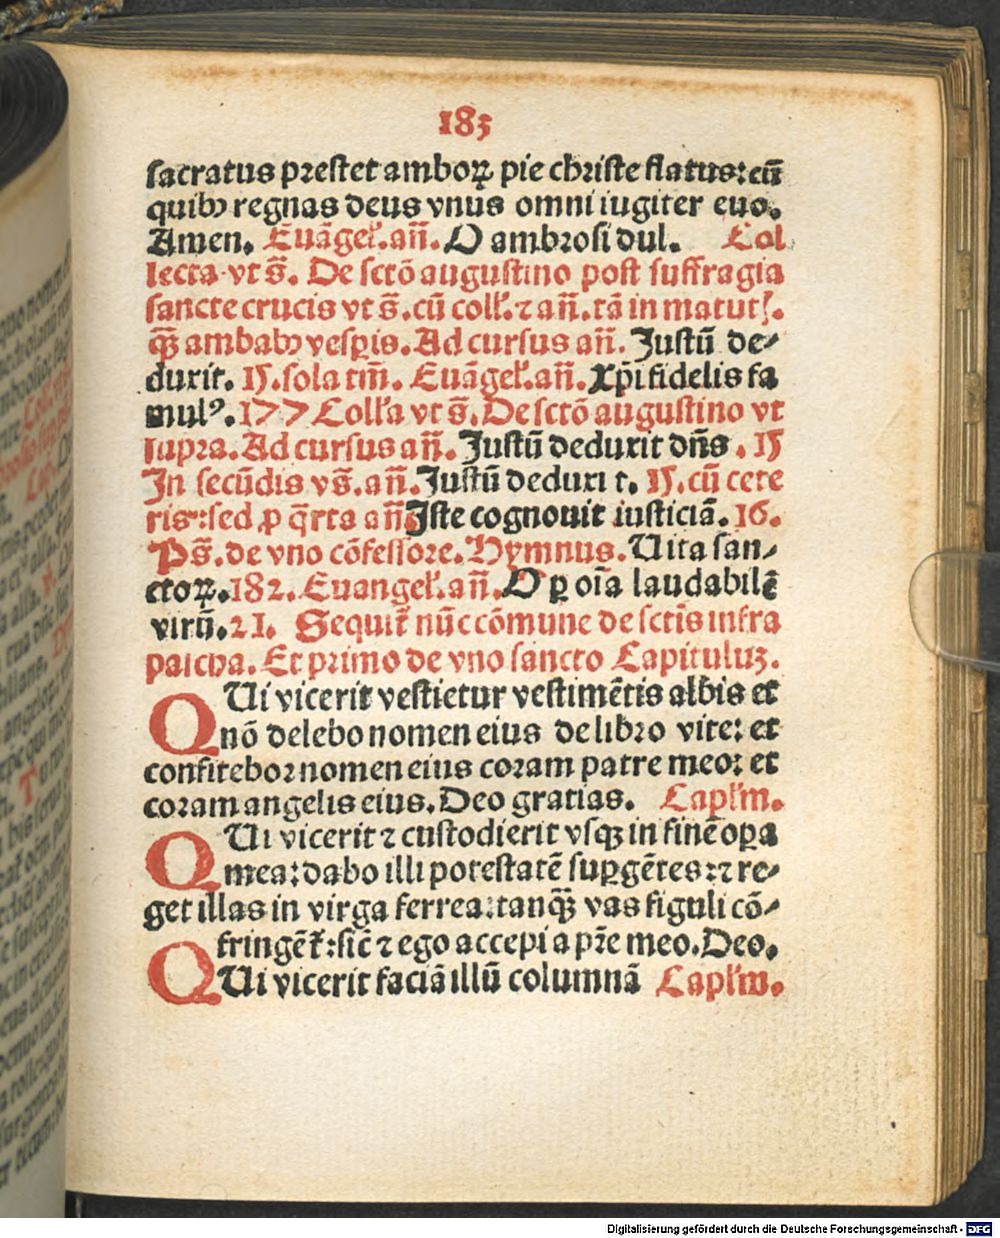 183
sacratus prestet amboꝝ pie christe flatus: cū
quibꝰ regnas deus vnus omni iugiter euo.
Amen. Euāgeł. añ. O ambrosi dul. Col
lecta vt s̄. De sctō augustino post suffragia
sancte crucis vt s̄. cū coll'. ⁊ añ. tā in matutꝭ.
qꝫ̄ ambabꝰ vesꝑis. Ad cursus añ. Justū de⸗
duxit. 15. sola tm̄. Euāgeł. añ. Xp̄i fidelis fa
mulꝰ. 177 Coll'a vt s̄. De sctō augustino vt
supra. Ad cursus añ. Justū deduxit dn̄s. 15
In secūdis vs̄. añ. Justū deduxi t. 15. cū cete
ris: sed ꝓ q̄rta añ Iste cognouit iusticiā. 16.
Ps̄. de vno cōfessore. Hymnus. Uita san⸗
ctoꝝ. 182. Euangeł. añ. O ꝑ oīa laudabilē
virū. 21. Sequit᷑ nūc cōmune de sctīs infra
pascha. Et primo de vno sancto Capituluꝫ.
QUi vicerit vestietur vestimētis albis et
nō delebo nomen eius de libro vite: et
confitebor nomen eius coram patre meo: et
coram angelis eius. Deo gratias. Capl'm.
QUi vicerit ⁊ custodierit vsqꝫ in finē oꝑa
mea: dabo illi potestatē suꝑ gētes: ⁊ re⸗
get illas in virga ferrea: tanqꝫ̄ vas figuli cō⸗
fringēt᷑: sic̄ ⁊ ego accepi a pr̄e meo. Deo.
QUi vicerit faciā illū columnā Capl'm.
Digitalisierung gefördert durch die Deutsche Forschungsgemeinschaft - DFG